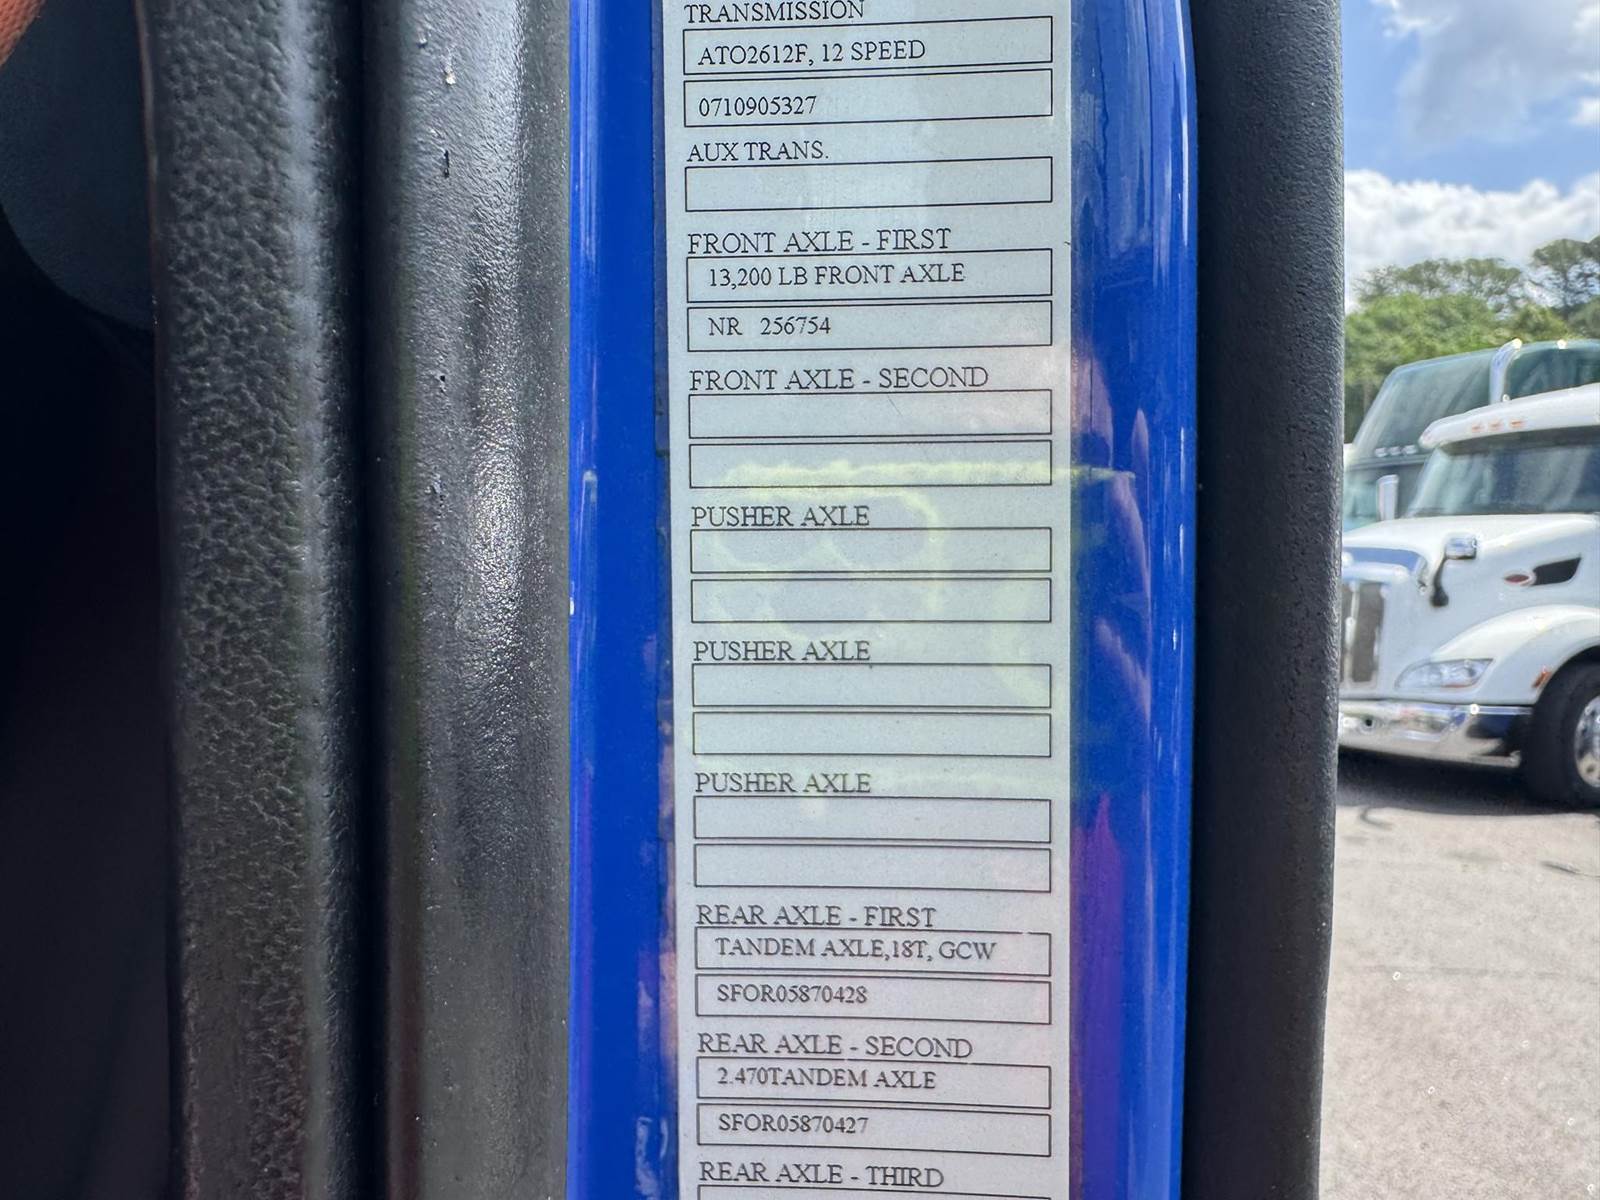 TRANSMISSION
ATO2612F, 12 SPEED
0710905327
AUX TRANS.
FRONT AXLE - FIRST
13,200 LB FRONT AXLE
NR 256754
FRONT AXLE - SECOND
PUSHER AXLE
PUSHER AXLE
PUSHER AXLE
REAR AXLE - FIRST
TANDEM AXLE,18T, GCW
SFOR05870428
REAR AXLE - SECOND
2.470TANDEM AXLE
SFOR05870427
REAR AXLE - THIRD